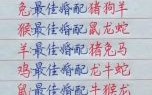 兔最佳婚配猪狗羊
猴最佳婚配鼠龙蛇
羊最佳婚配猪兔马
鸡最佳婚配龙牛蛇
鼠最佳婚配牛猴龙